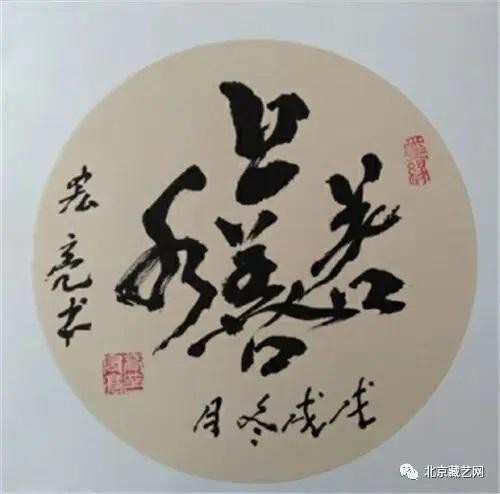 上善若水
戊戌冬月
宏亮书
墨缘
北京藏艺网